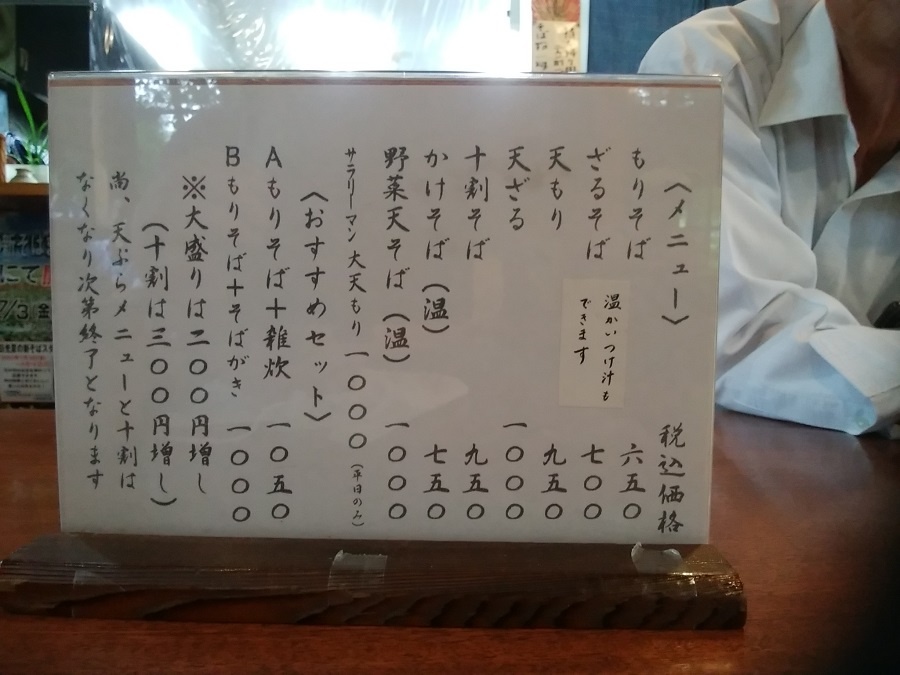 〈メニュー〉 税込価格
もりそば 六五〇
ざるそば 七〇〇
温かいつけ汁も
できます
天もり 九五〇
天ざる 一〇〇〇
十割そば 九五〇
かけそば(温) 七五〇
野菜天そば(温) 一〇〇〇
サラリーマン大天もり 一〇〇〇(平日のみ)
〈おすすめセット〉
Aもりそば十雑炊 一〇五〇
Bもりそば十そばがき 一〇〇〇
※大盛りは二〇〇円増し
(十割は三〇〇円増し)
尚、天ぷらメニューと十割は
なくなり次第終了となります
にて
7/3 金